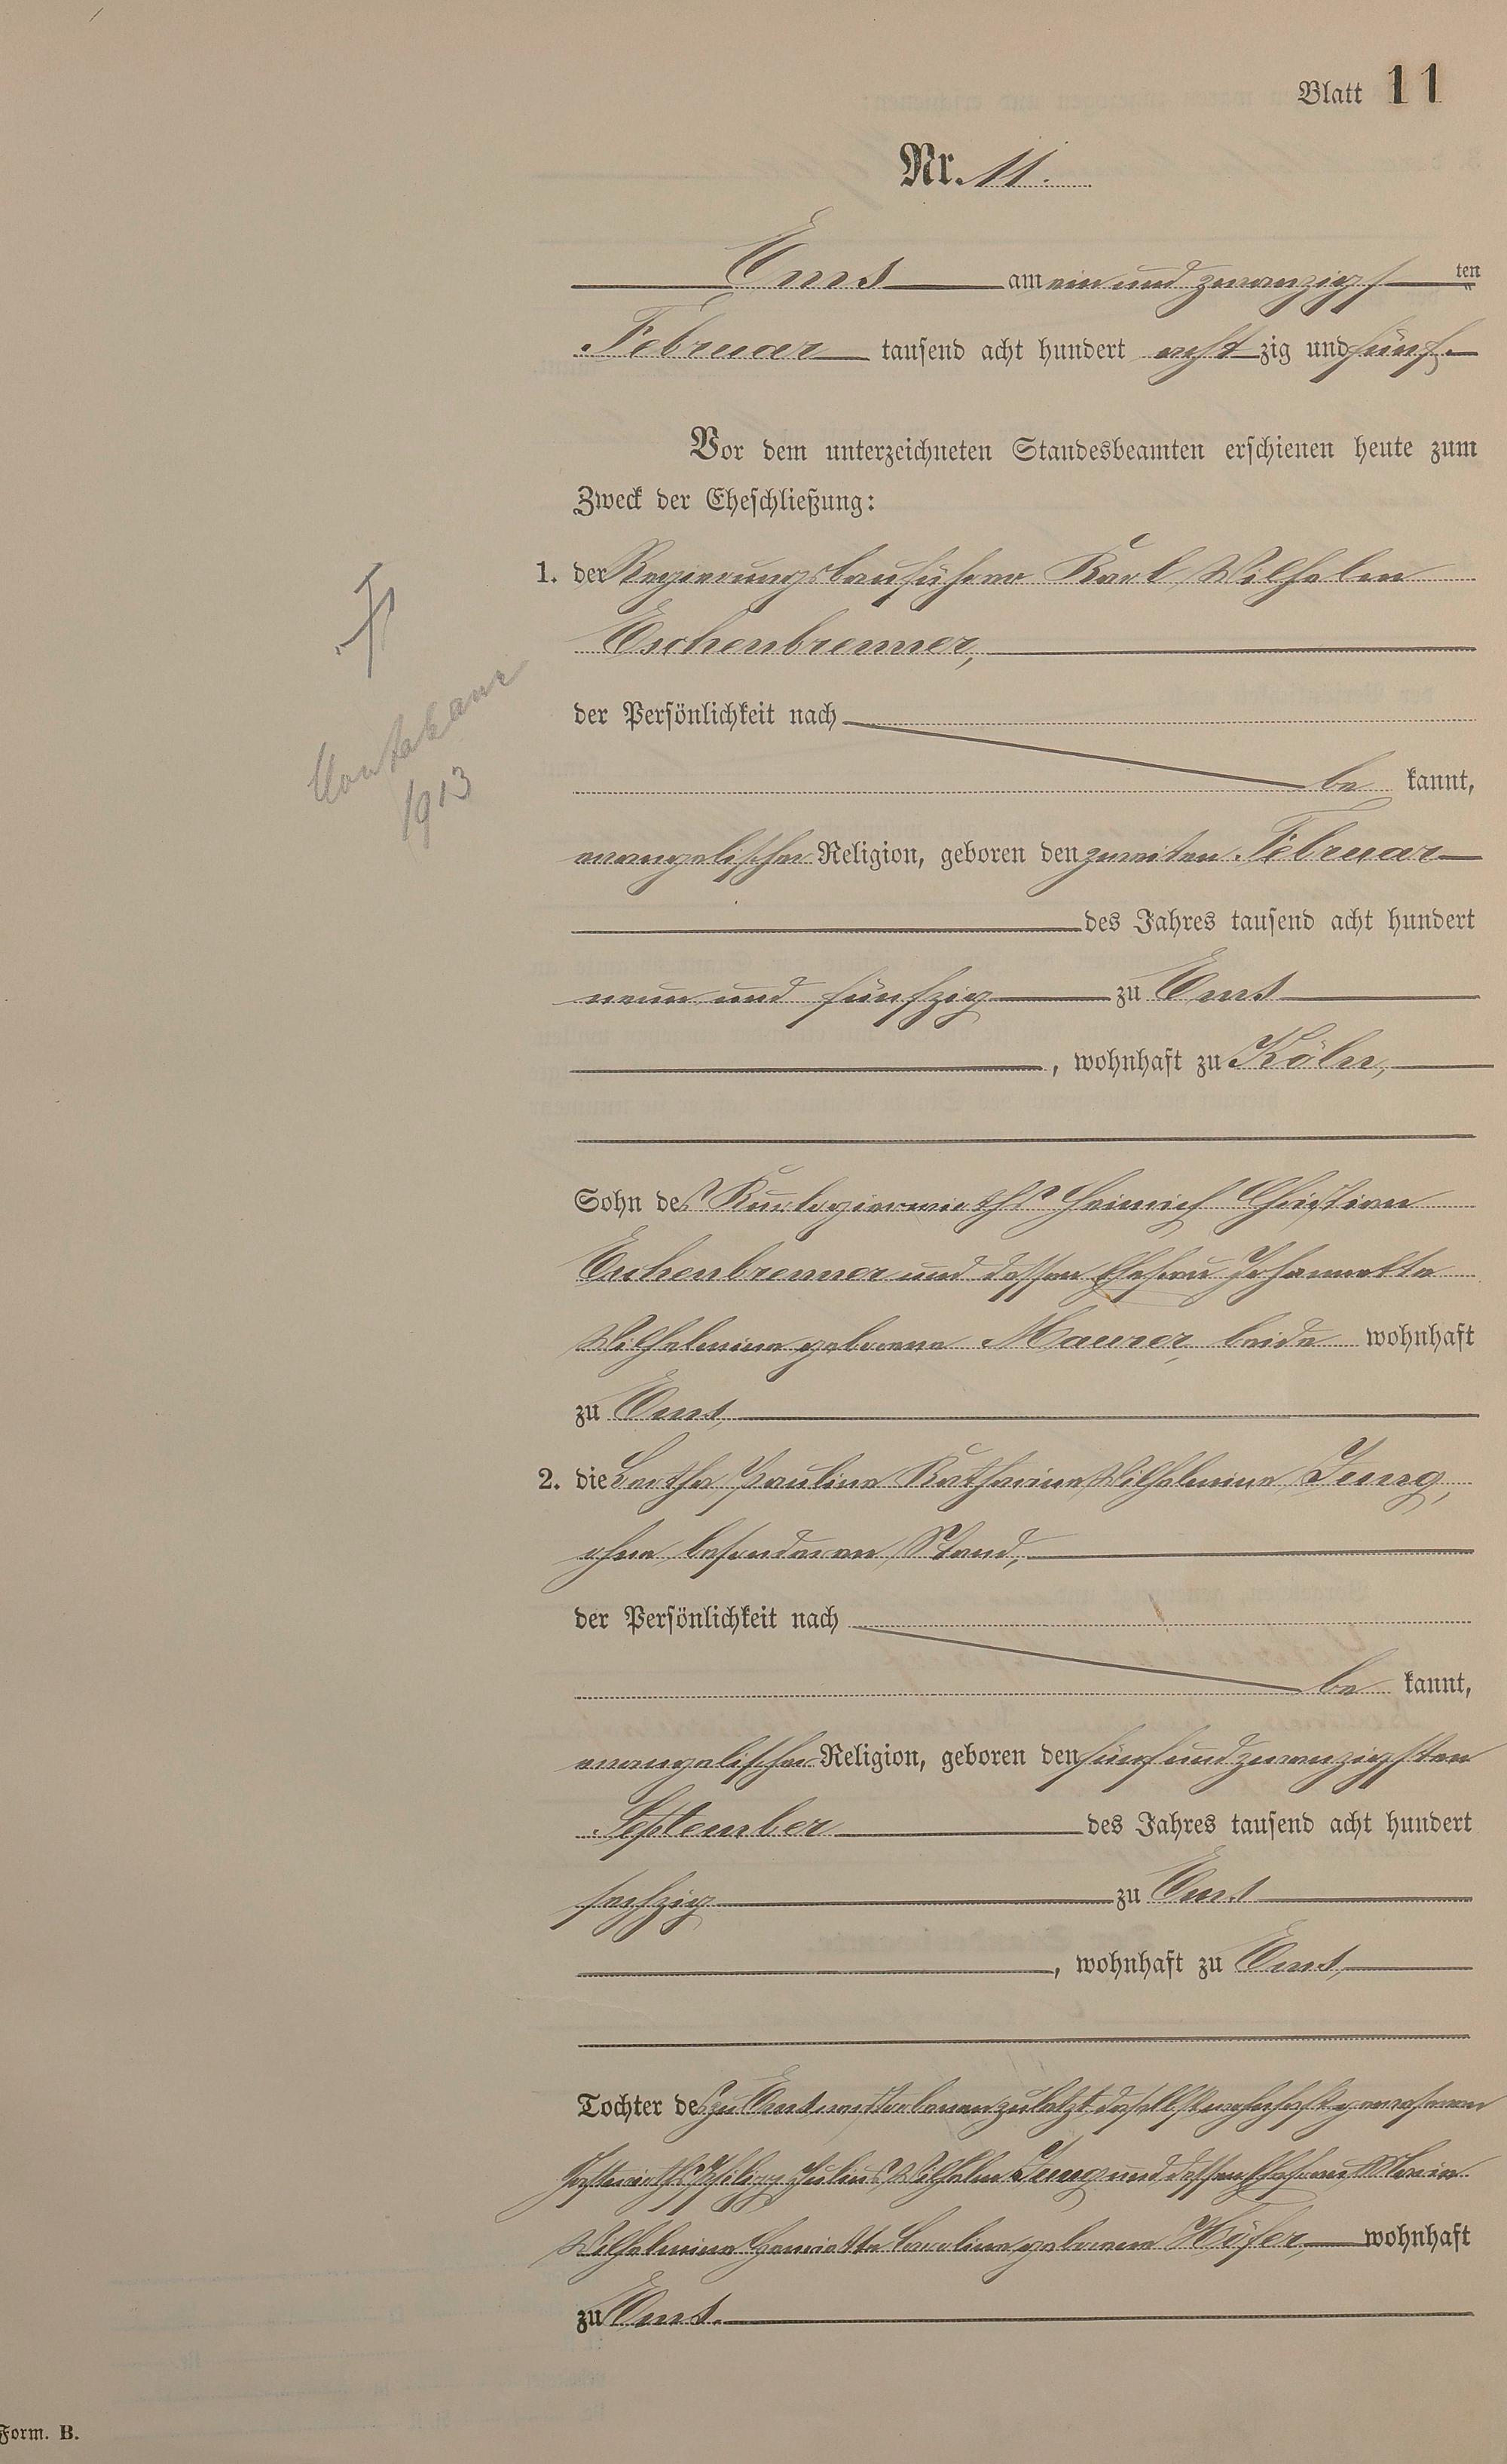 Blatt 11
Nr. 11.
Ems am ein und zwanzigsten
Februar tausend acht hundert achtzig und fünf
Vor dem unterzeichneten Standesbeamten erschienen heute zum
Zweck der Eheschließung:
1. der Regierungsbauführer Karl Wilhelm
Eschenbrenner,
der Persönlichkeit nach
be kannt,
evangelischer Religion, geboren den zweiten Februar
des Jahres tausend acht hundert
neun und fünfzig zu Ems
, wohnhaft zu Köln,
Sohn des Kurlogierwirths Heinrich Christian
Eschenbrenner und dessen Ehefrau Johannette
Wilhelmine geborene Maurer, beide wohnhaft
zu Ems,
2. die Bertha Pauline Katharine Wilhelmine Jung,
ohne besonderen Stand,
der Persönlichkeit nach
be kannt,
evangelischer Religion, geboren den fünf und zwanzigsten
September des Jahres tausend acht hundert
sechzig zu Ems
, wohnhaft zu Ems,
Tochter des zu Ems verstorbenen zuletzt daselbst wohnhaft gewesenen
Gastwirths Philipp Julius Wilhelm Jung und dessen Ehefrau Marie
Wilhelmine Henriette Caroline geborene Höfer, wohnhaft
zu Ems.
1913
Form. B.